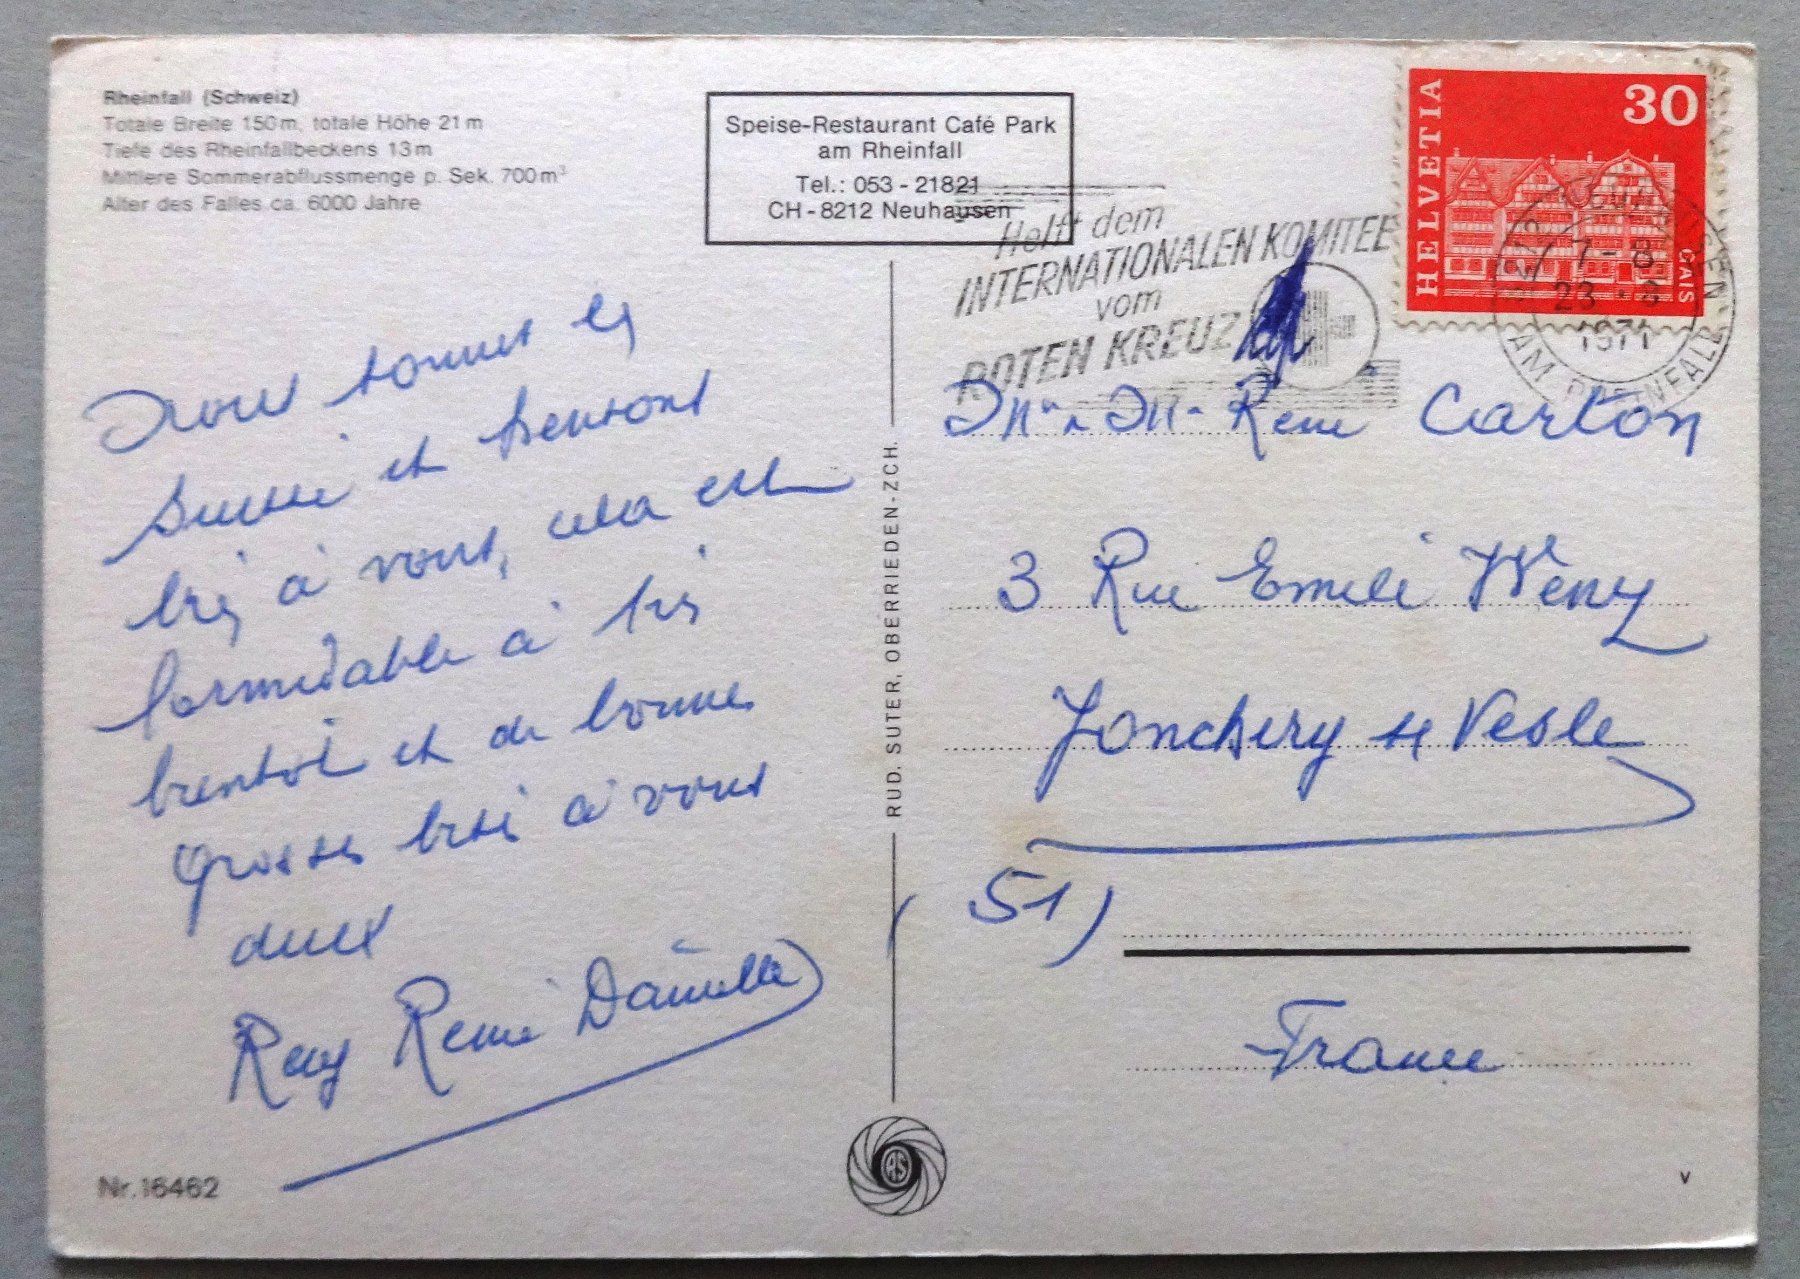 Rheinfall (Schweiz)
Totale Breite 150 m, totale Höhe 21 m
Tiefe des Rheinfallbeckens 13 m
Mittlere Sommerabflussmenge p. Sek. 700 m³
Alter des Falles ca. 6000 Jahre
Speise-Restaurant Café Park
am Rheinfall
Tel.: 053 - 21821
CH - 8212 Neuhausen
Helft dem
INTERNATIONALEN KOMITEE
vom
ROTEN KREUZ
HELVETIA
30
GAIS
8212 NEUHAUSEN
7-8
23
1971
AM RHEINFALL
Nous sommes en
Suisse et pensons
très à vous, cela est
formidable à très
bientôt et de bonnes
grosses bises à vous
deux
Remy Remi Danielle
RUD. SUTER, OBERRIEDEN-ZCH.
Mr M René Carton
3 Rue Emile Wény
Jonchery s Vesle
(51)
France
Nr. 16462
RS
V